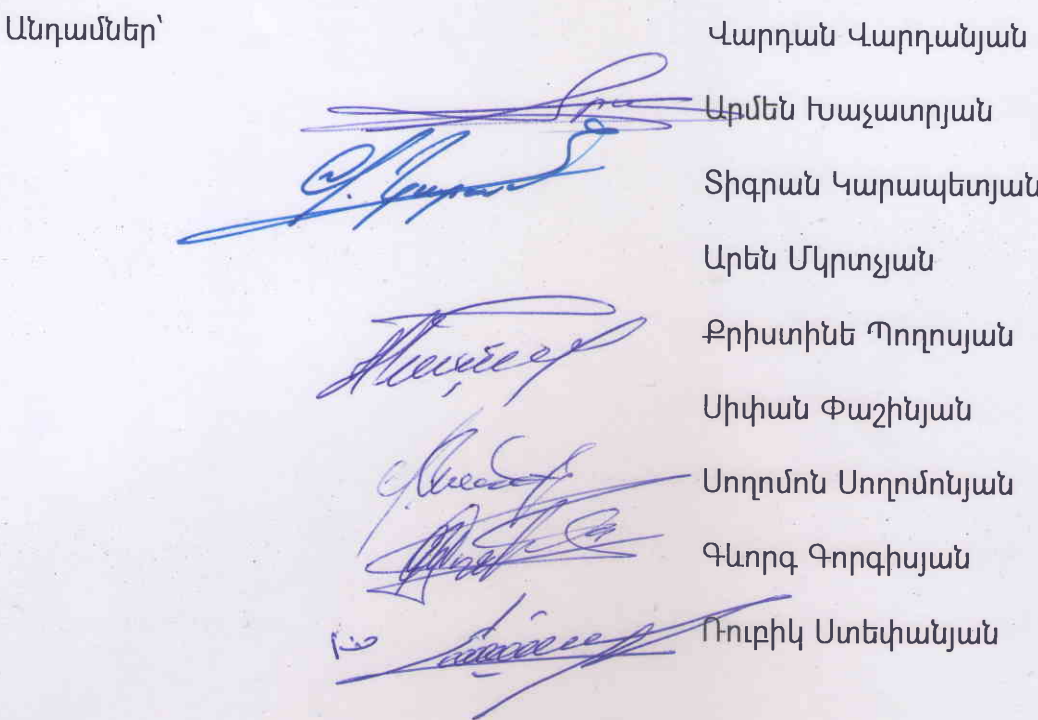 Անդամներ՝ Վարդան Վարդանյան
Արմեն Խաչատրյան
Տիգրան Կարապետյան
Արեն Մկրտչյան
Քրիստինե Պողոսյան
Սիփան Փաշինյան
Սողոմոն Սողոմոնյան
Գևորգ Գորգիսյան
Ռուբիկ Ստեփանյան